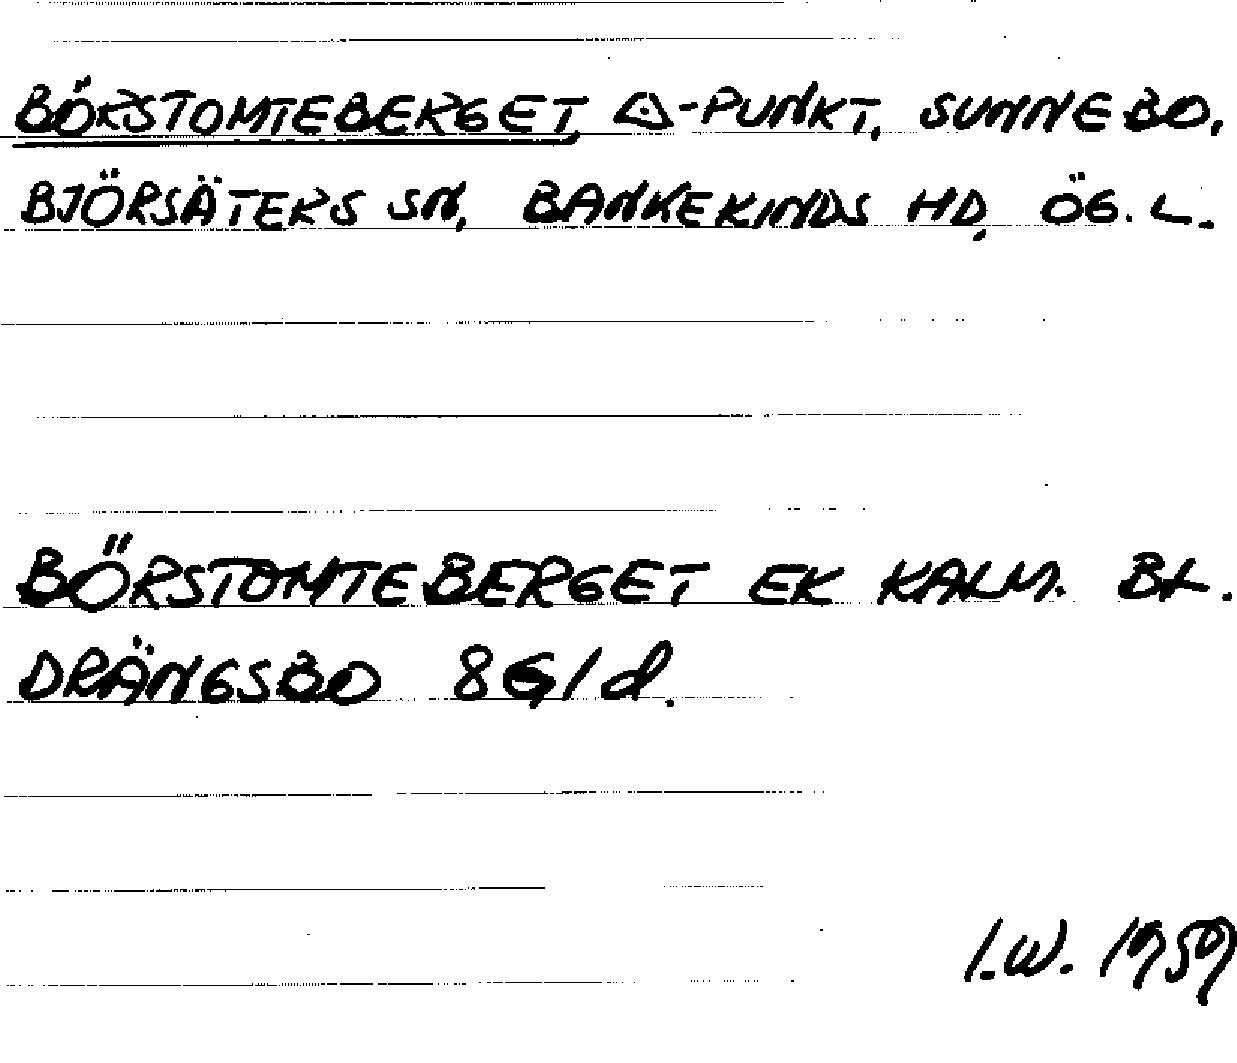 BÖRSTOMTEBERGET, △-PUNKT, SUNNEBO,
BJÖRSÄTERS SN, BANKEKINDS HD, ÖG. L.
BÖRSTOMTEBERGET EK KALM. BL.
DRÄNGSBO 8G/d.
I.W. 1959